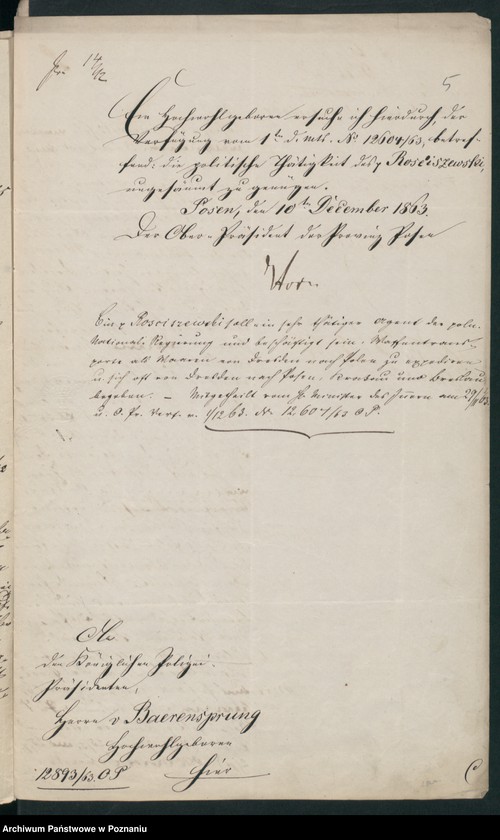 pr. 14/12
5
Ew Hochwohlgeboren ersuche ich hierdurch, der
Verfügung vom 1ten d. Mts. No 12604/63, betref-
fend: die politische Thätigkeit des p Rosciszewski,
ungesäumt zu genügen.
Posen, den 10ten December 1863.
Der Ober-Präsident der Provinz Posen
Horn
Ein p Rosciszewski soll ein sehr thätiger Agent der poln.
National-Regierung und beschäftigt sein, Waffentrans-
porte als Waaren von Dresden nach Polen zu expediren
u. sich oft von Dresden nach Posen, Krakau und Breslau
begeben. — Mitgetheilt vom H. Minister des Innern am 27/11 63
u. O. Pr. Verf. v. 1/12 63. No 12604/63 O.P.
An
den Königlichen Polizei-
Präsidenten,
Herrn v Baerensprung
Hochwohlgeboren
hier
12893/63. O.P
Archiwum Państwowe w Poznaniu